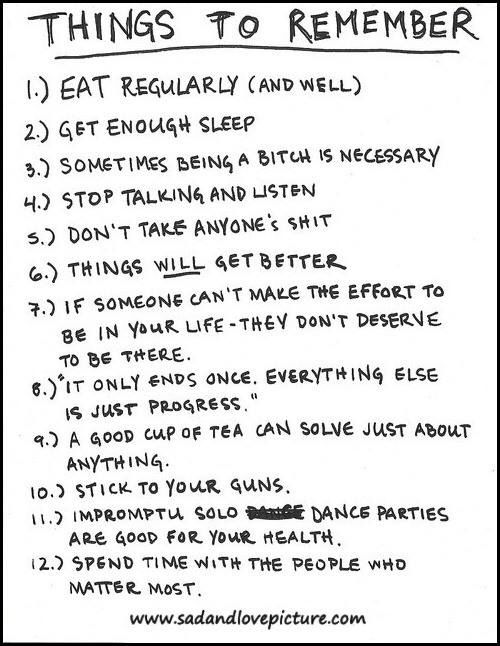 THINGS TO REMEMBER
1.) EAT REGULARLY (AND WELL)
2.) GET ENOUGH SLEEP
3.) SOMETIMES BEING A BITCH IS NECESSARY
4.) STOP TALKING AND LISTEN
5.) DON'T TAKE ANYONE'S SHIT
6.) THINGS WILL GET BETTER
7.) IF SOMEONE CAN'T MAKE THE EFFORT TO
BE IN YOUR LIFE - THEY DON'T DESERVE
TO BE THERE.
8.) "IT ONLY ENDS ONCE. EVERYTHING ELSE
IS JUST PROGRESS."
9.) A GOOD CUP OF TEA CAN SOLVE JUST ABOUT
ANYTHING.
10.) STICK TO YOUR GUNS.
11.) IMPROMPTU SOLO DANCE PARTIES
ARE GOOD FOR YOUR HEALTH.
12.) SPEND TIME WITH THE PEOPLE WHO
MATTER MOST.
www.sadandlovepicture.com